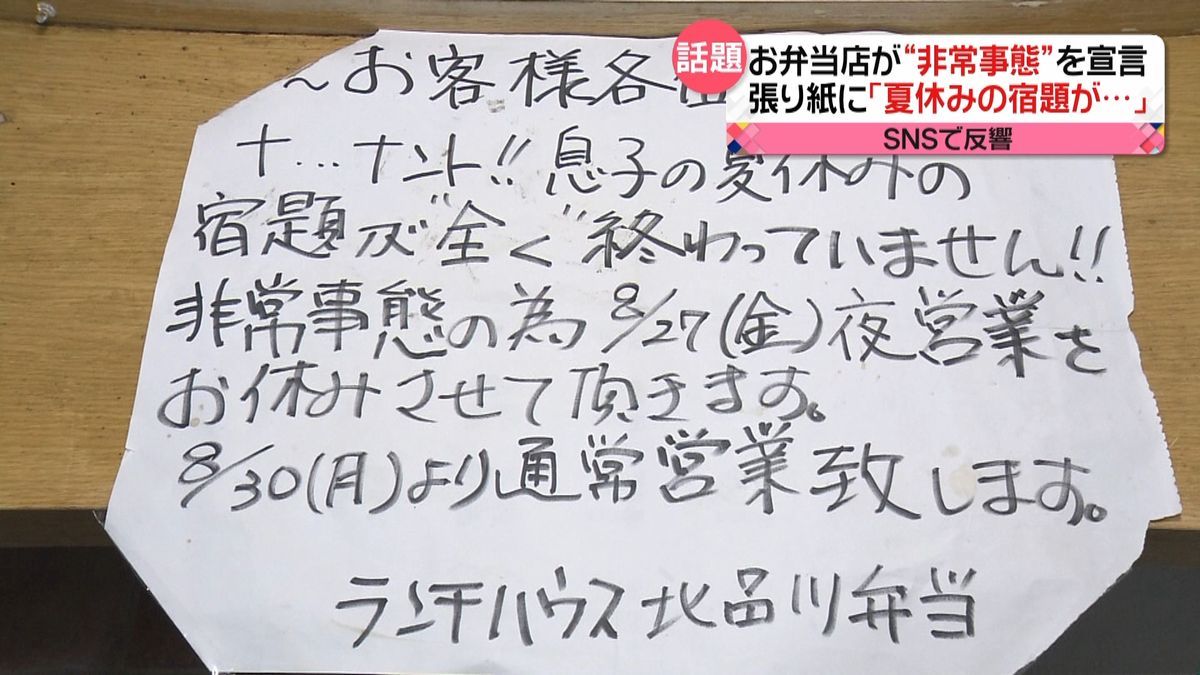 話題
お弁当店が“非常事態”を宣言
張り紙に「夏休みの宿題が…」
SNSで反響
～お客様各
ナ…ナント!!息子の夏休みの
宿題が“全く”終わっていません!!
非常事態の為8/27(金)夜営業を
お休みさせて頂きます。
8/30(月)より通常営業致します。
ランチハウス北品川弁当